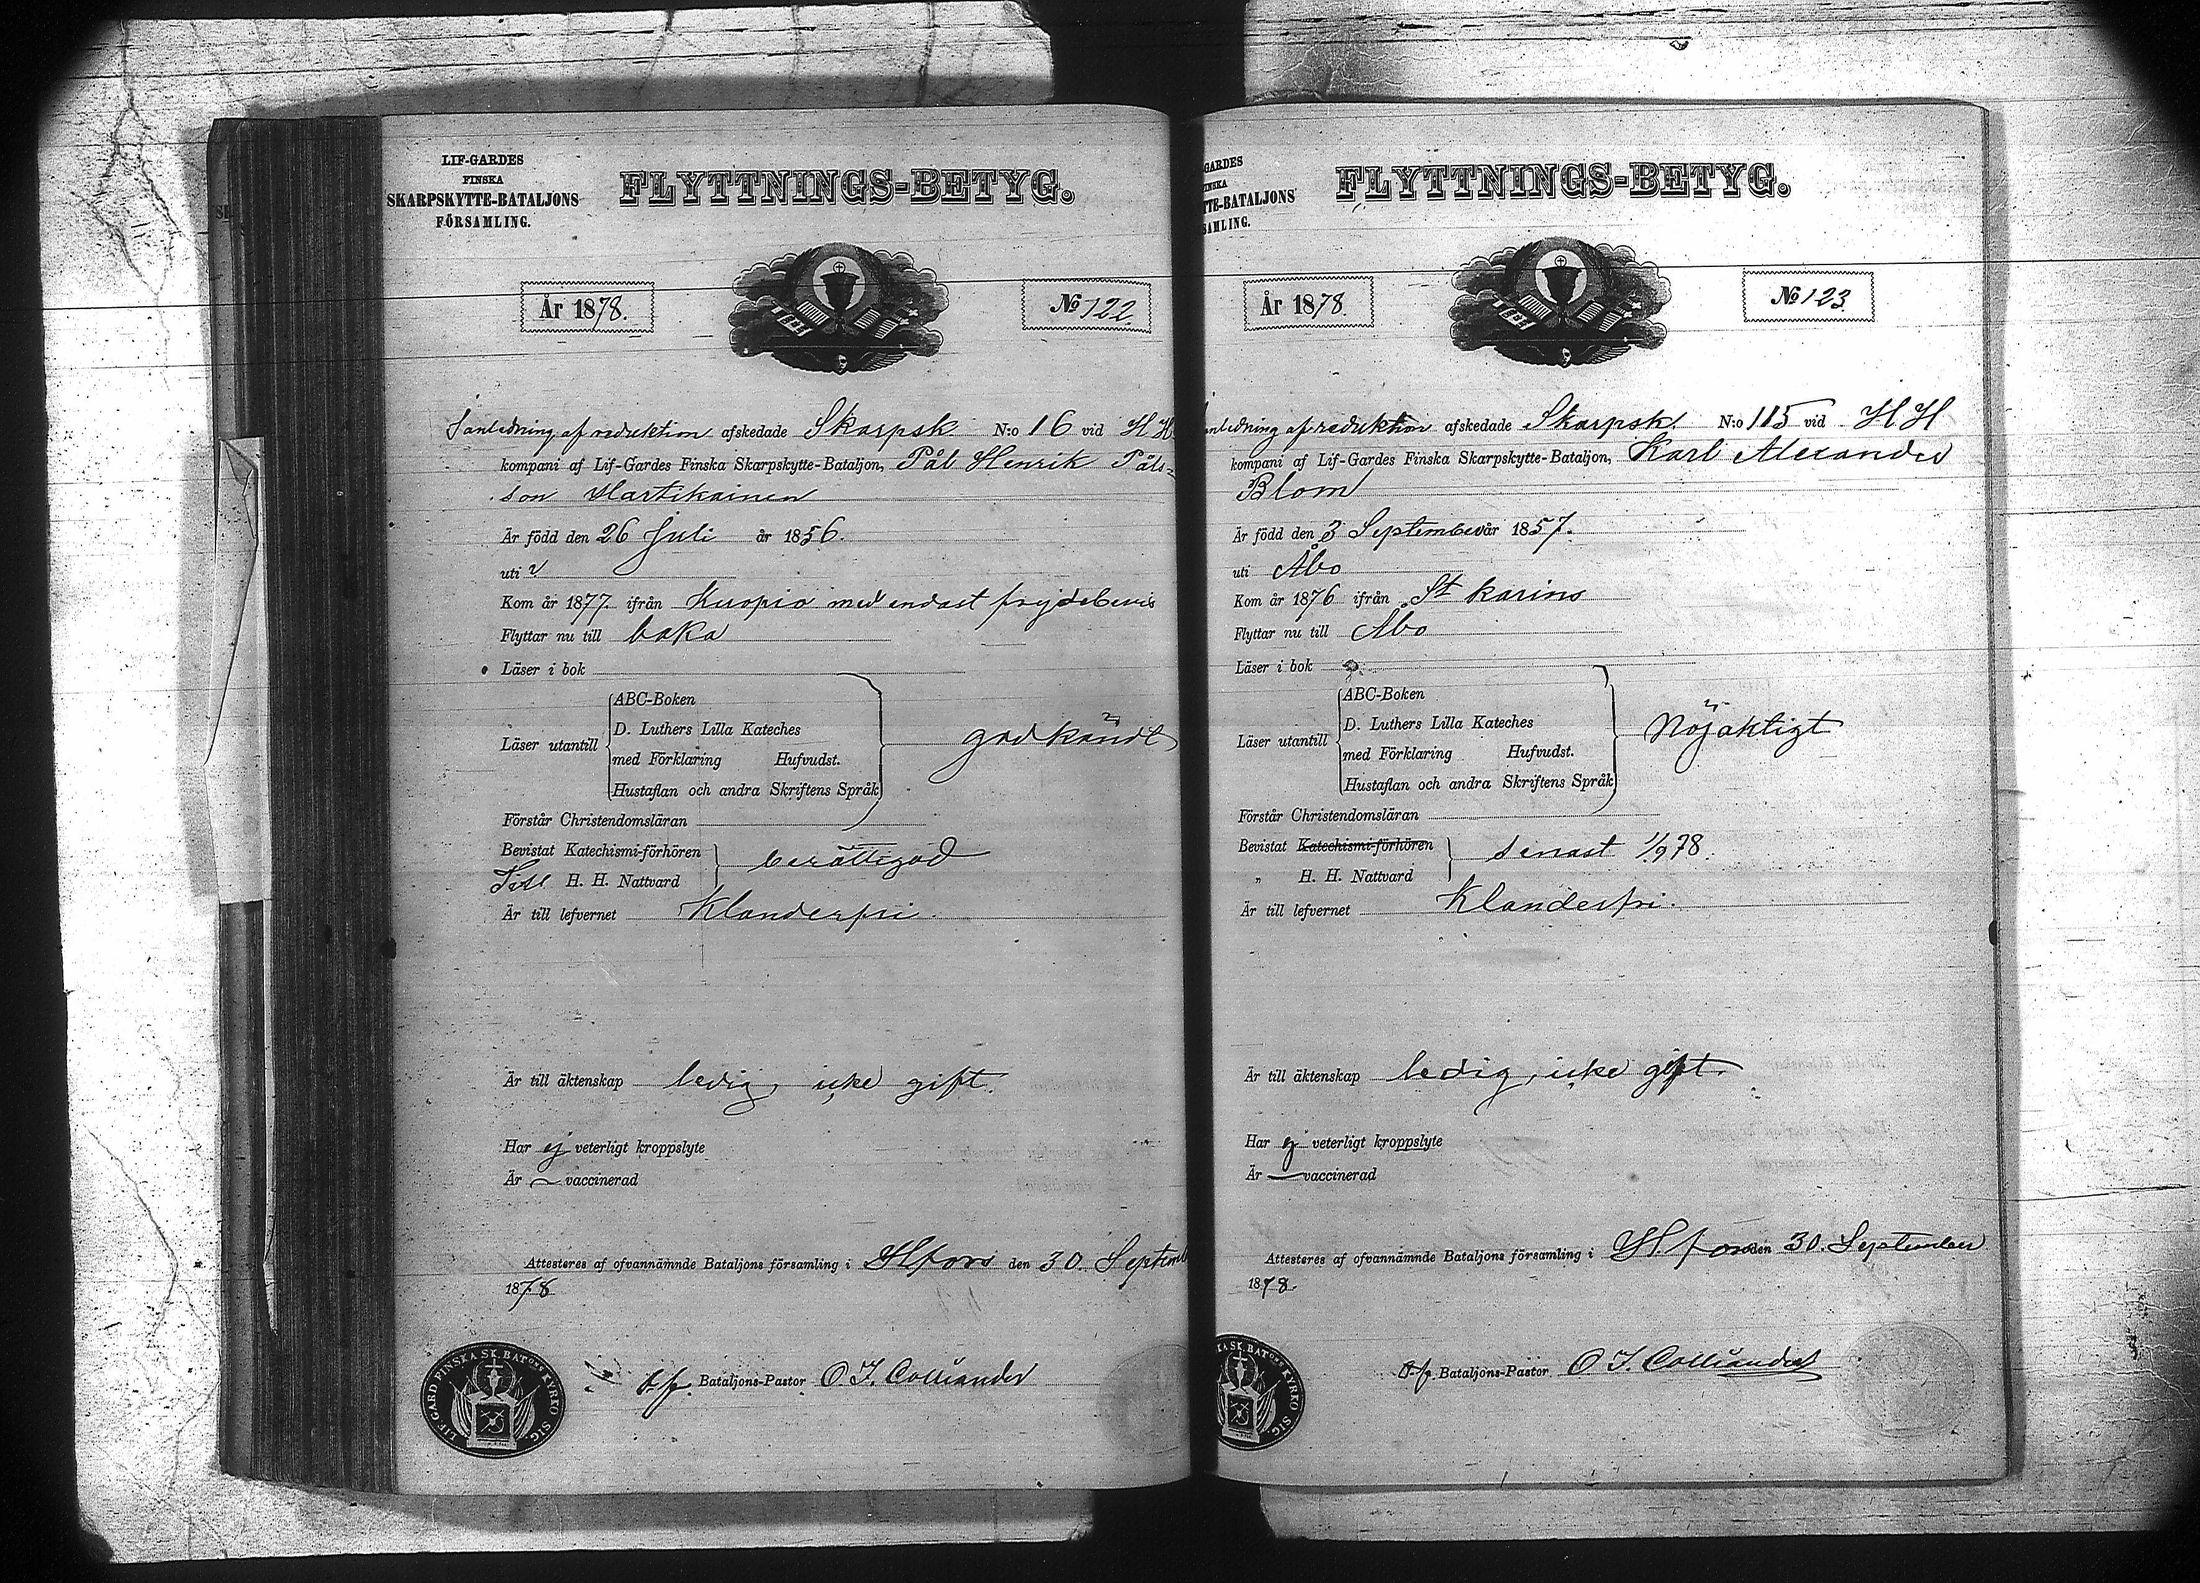 LIF-GARDES
FINSKA
SKARPSKYTTE-BATALJONS
FÖRSAMLING.
FLYTTNINGS-BETYG.
År 1878.
No 122.
I anledning af reduktion afskedade Skarpsk. N:o 16 vid H H
kompani af Lif-Gardes Finska Skarpskytte-Bataljon, Pål Henrik Påls-
son Martikainen
Är född den 26 Juli år 1856.
uti
Kom år 1877. ifrån Kuopio med endast frejdebevis
Flyttar nu till baka
Läser i bok
Läser utantill
ABC-Boken
D. Luthers Lilla Kateches
med Förklaring Hufvudst.
Hustaflan och andra Skriftens Språk
godkändt
Förstår Christendomsläran
Bevistat Katechismi-förhören
Till H. H. Nattvard
berättigad
Är till lefvernet Klanderfri.
Är till äktenskap ledig, icke gift.
Har ej veterligt kroppslyte
Är vaccinerad
Attesteres af ofvannämnde Bataljons församling i Hfors den 30. Septemb
1878
LIF.GARD.FINSKA SK.BATONS KYRKO SIG.
t.f. Bataljons-Pastor O. I. Colliander
GARDES
INSKA
TTE-BATALJONS
SAMLING.
FLYTTNINGS-BETYG.
År 1878.
No 123.
anledning af reduktion afskedade Skarpsk. N:o 115 vid H H
kompani af Lif-Gardes Finska Skarpskytte-Bataljon, Karl Alexander
Blom
Är född den 3 September år 1857.
uti Åbo
Kom år 1876 ifrån St Karins
Flyttar nu till Åbo
Läser i bok
Läser utantill
ABC-Boken
D. Luthers Lilla Kateches
med Förklaring Hufvudst.
Hustaflan och andra Skriftens Språk
Nöjaktigt
Förstår Christendomsläran
Bevistat Katechismi-förhören
" H. H. Nattvard
senast 1/9 78.
Är till lefvernet Klanderfri.
Är till äktenskap ledig, icke gift.
Har ej veterligt kroppslyte
Är vaccinerad
Attesteres af ofvannämnde Bataljons församling i H.fors den 30. September
1878.
KA SK.BATONS KYRKO SIG.
t.f. Bataljons-Pastor O. I. Colliander